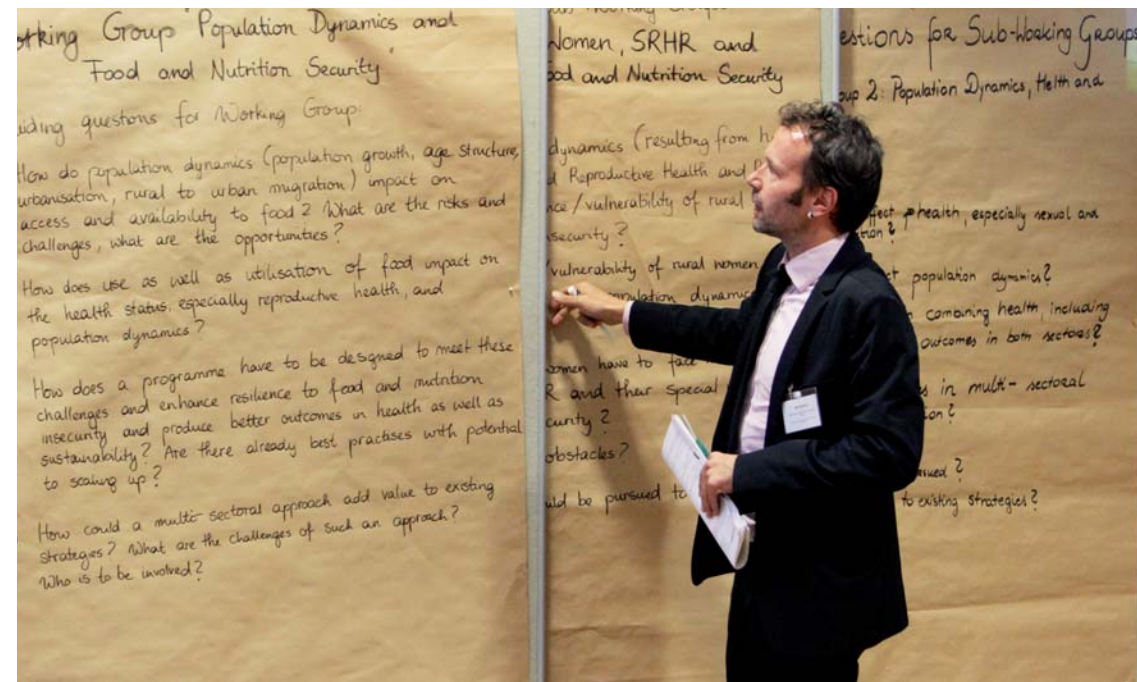 orking Group "Population Dynamics and
Food and Nutrition Security"
uiding questions for Working Group:
How do population dynamics (population growth, age structure,
urbanisation, rural to urban migration) impact on
access and availability to food? What are the risks and
challenges, what are the opportunities?
How does use as well as utilisation of food impact on
the health status, especially reproductive health, and
population dynamics?
How does a programme have to be designed to meet these
challenges and enhance resilience to food and nutrition
insecurity and produce better outcomes in health as well as
sustainability? Are there already best practises with potential
to scaling up?
How could a multi-sectoral approach add value to existing
strategies? What are the challenges of such an approach?
Who is to be involved?
Working Groups
Women, SRHR and
ood and Nutrition Security
dynamics (resulting from
d Reproductive Health and
nce/vulnerability of rural
security?
vulnerability of rural women
population dynamic
women have to face
R and their special
curity?
obstacles?
uld be pursued to
estions for Sub-Working Groups
oup 2: Population Dynamics, Helth and
ffect health, especially sexual and
tion?
ct population dynamics?
combining health, including
outcomes in both sectors?
es in multi-sectoral
ion?
rsued?
to existing strategies?